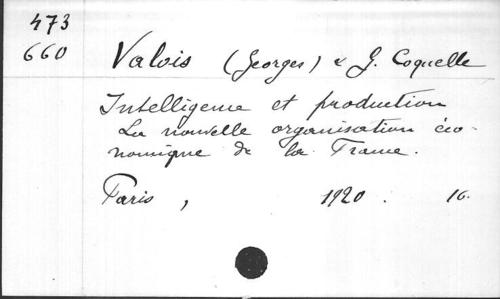 473
660
Valois (Georges) & G. Coquelle
Intelligence et production
La nouvelle organisation éco-
nomique de la France.
Paris, 1920. 16.